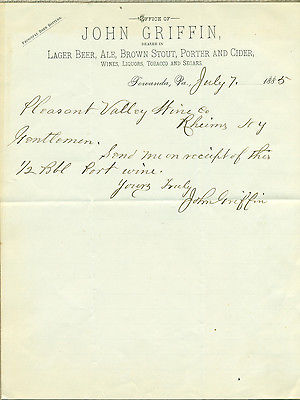 OFFICE OF
JOHN GRIFFIN,
DEALER IN
LAGER BEER, ALE, BROWN STOUT, PORTER AND CIDER,
WINES, LIQUORS, TOBACCO AND SEGARS.
Towanda, Pa. July 7. 1885
Pleasant Valley Wine Co
Rheims N Y
Gentlemen.
Send me on receipt of this
1/2 Bbl Port wine.
Yours Truly
John Griffin